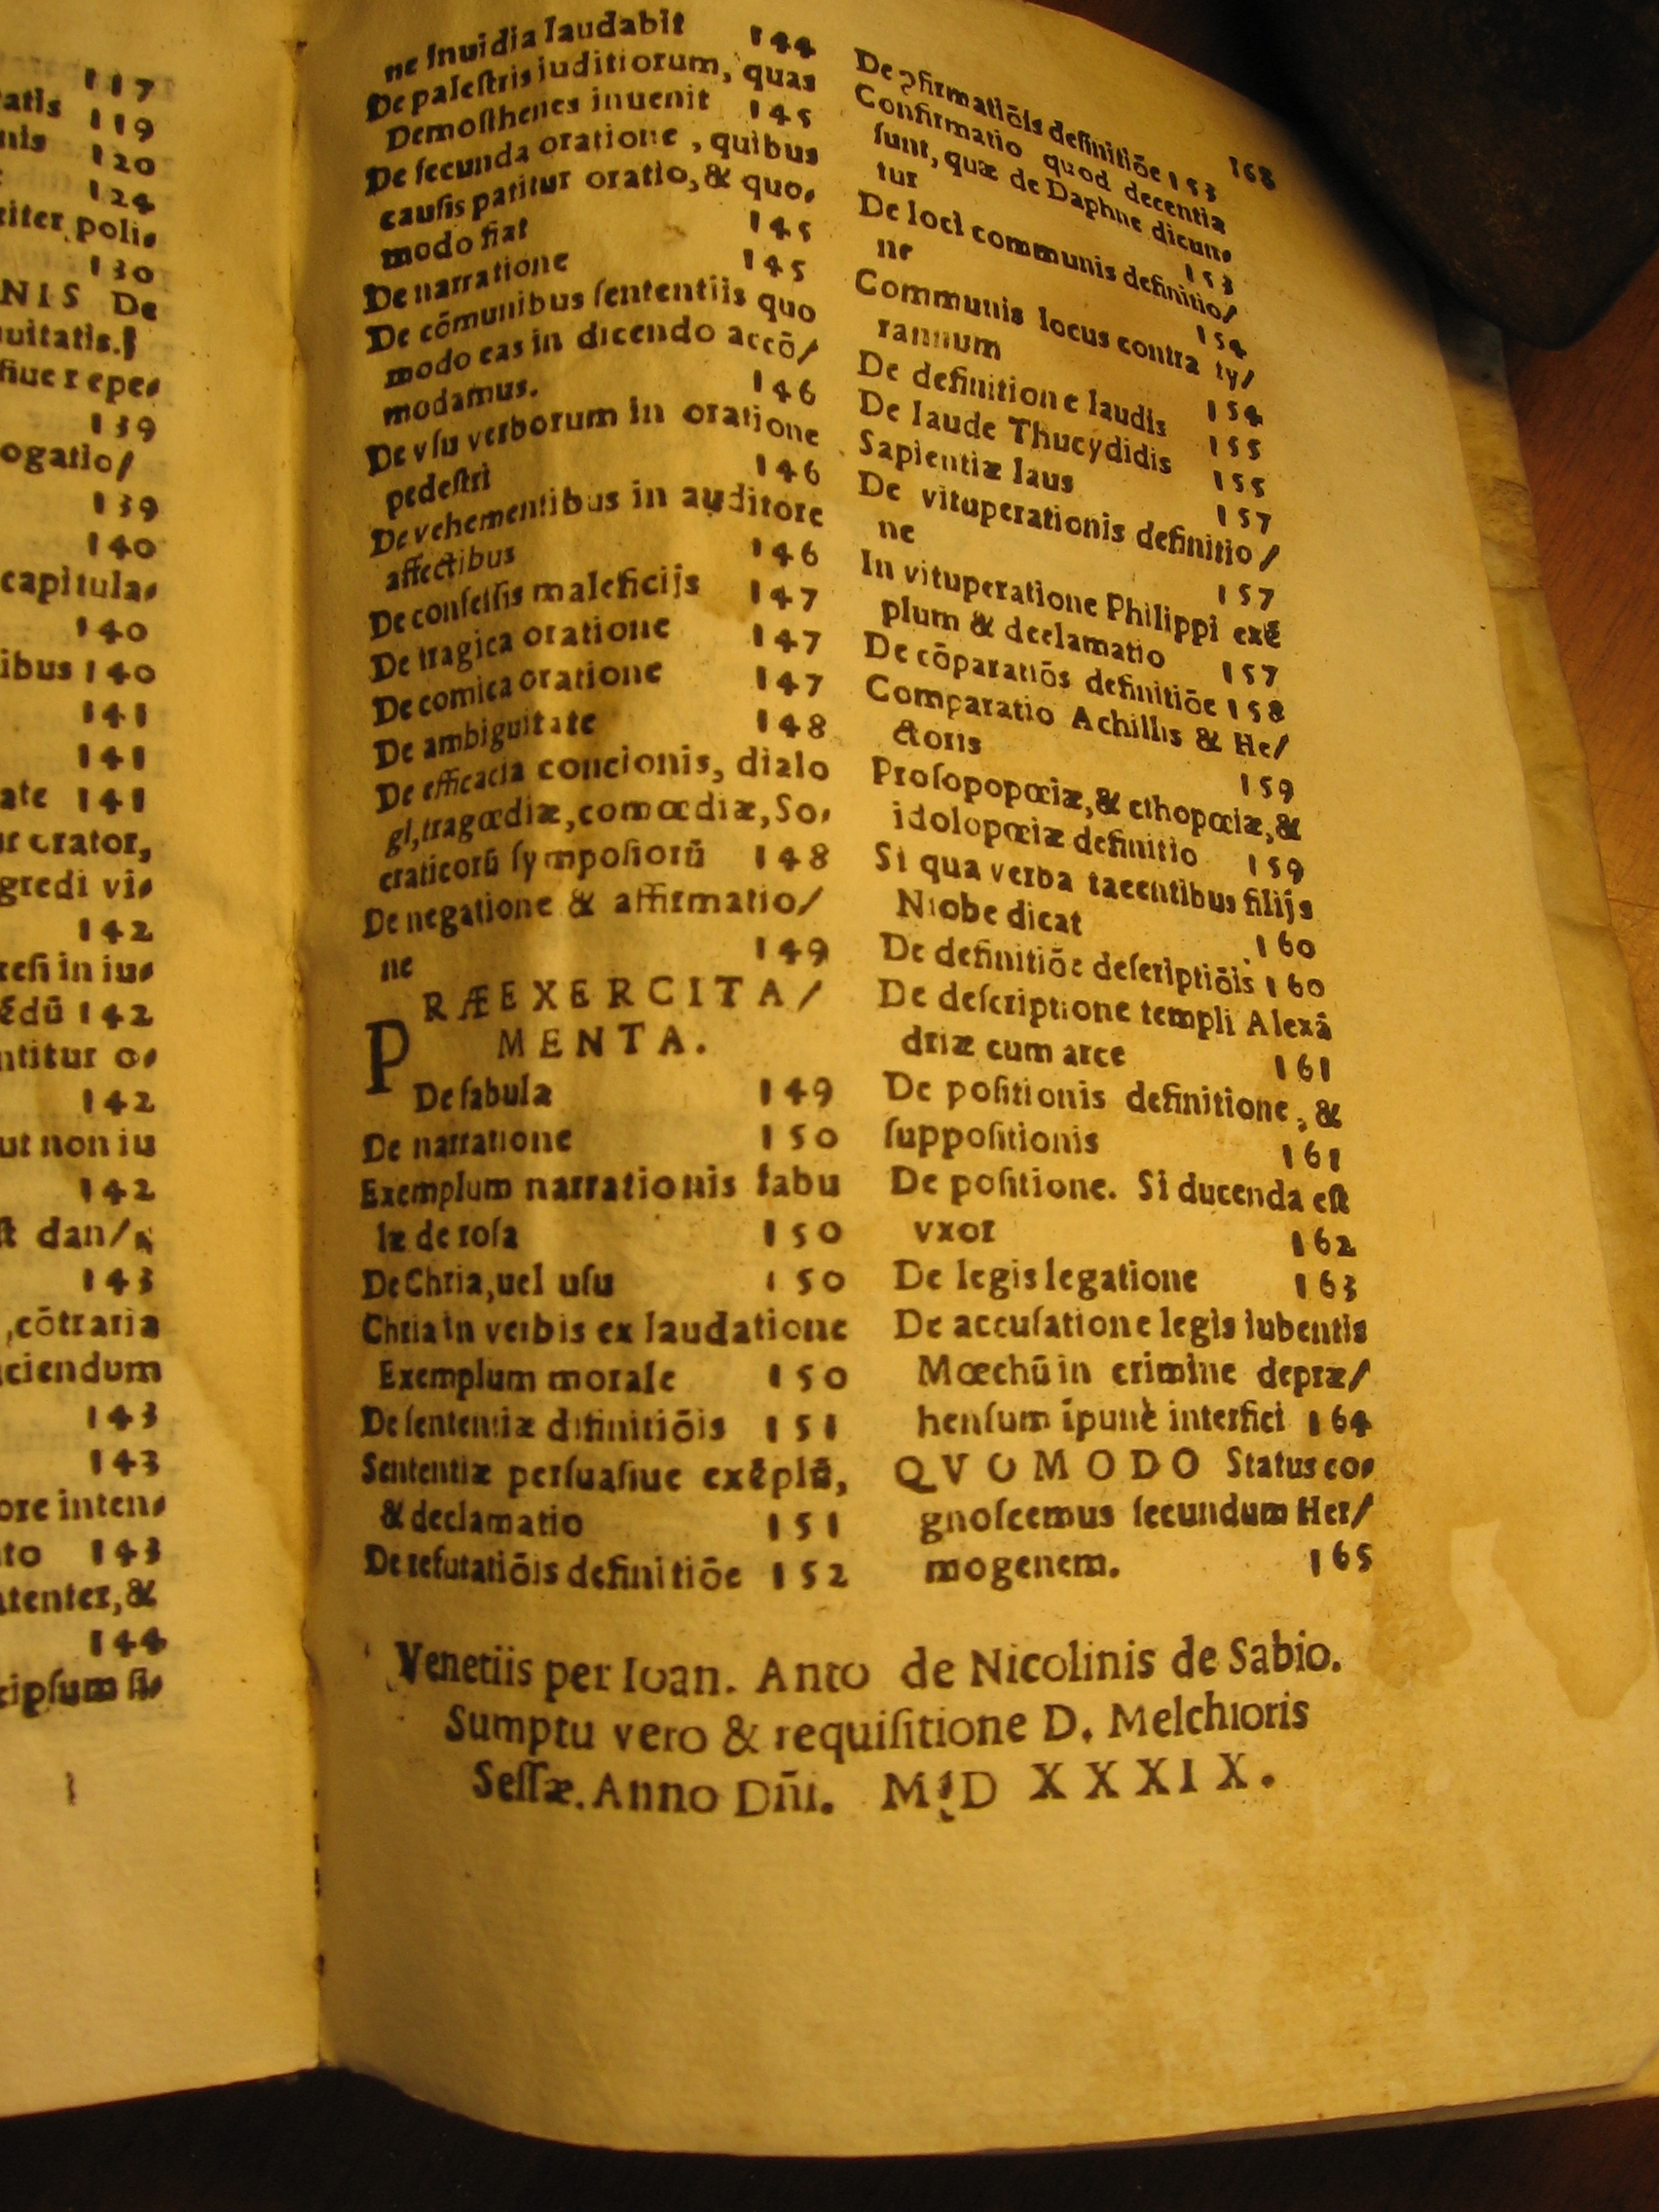 117
atis 119
nis 120
124
citer poli⸗
130
NIS De
uitatis.
siue repe⸗
139
ogatio/
139
140
capitula⸗
140
ibus 140
141
141
ate 141
ur orator,
gredi vi⸗
142
resi in iu⸗
ẽdū 142
ntitur o⸗
142
ut non iu
142
st dan/
143
,cōtraria
aciendum
143
143
ore inten⸗
to 143
atenter, &
144
cipsum si⸗
ne Inuidia laudabit 144
De palestris iuditiorum, quas
Demosthenes inuenit 145
De secunda oratione, quibus
causis patitur oratio, & quo⸗
modo fiat 145
De narratione 145
De cōmunibus sententiis quo
modo eas in dicendo accō/
modamus. 146
De vsu verborum in oratione
pedestri 146
De vehementibus in auditore
affectibus 146
De confessis maleficijs 147
De tragica oratione 147
De comica oratione 147
De ambiguitate 148
De efficacia concionis, dialo
gi, tragœdiæ, comœdiæ, So⸗
craticorū symposiorū 148
De negatione & affirmatio/
ne 149
PRÆEXERCITA/
MENTA.
De fabula 149
De narratione 150
Exemplum narrationis fabu
læ de rosa 150
De Chria, uel usu 150
Chria in verbis ex laudatione
Exemplum morale 150
De sententiæ difinitiōis 151
Sententiæ persuasiue exēplū,
& declamatio 151
De refutatiōis definitiōe 152
168
De ꝯfirmatiōis definitiōe 153
Confirmatio quod decentia
sunt, quæ de Daphne dicun⸗
tur 153
De loci communis definitio/
ne 154
Communis locus contra ty/
rannum 154
De definitione laudis 155
De laude Thucydidis 155
Sapientiæ laus 157
De vituperationis definitio/
ne 157
In vituperatione Philippi exē
plum & declamatio 157
De cōparatiōs definitiōe 158
Comparatio Achillis & He/
ctoris 159
Prosopopœiæ, & ethopœiæ, &
idolopœiæ definitio 159
Si qua verba tacentibus filijs
Niobe dicat 160
De definitiōe descriptiōis 160
De descriptione templi Alexā
driæ cum arce 161
De positionis definitione, &
suppositionis 161
De positione. Si ducenda est
vxor 162
De legis legatione 163
De accusatione legis iubentis
Mœchū in crimine depræ/
hensum īpunè interfici 164
QVOMODO Status co⸗
gnoscemus secundum Her/
mogenem. 165
Venetiis per Ioan. Anto de Nicolinis de Sabio.
Sumptu vero & requisitione D. Melchioris
Sessæ. Anno Dñi. M D XXXIX.